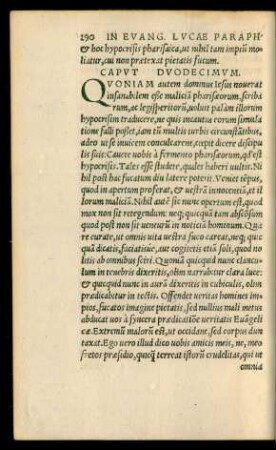 290 IN EVANG. LVCAE PARAPH
& hoc hypocrisis pharisaica, ut nihil tam impiũ mo
liatur, cui non prætexat pietatis fucum.
CAPVT DVODECIMVM.
QVONIAM autem dominus Iesus nouerat
insanabilem esse maliciã pharisæorum, scriba
rum, ac legisperitorũ, uoluit palàm illorum
hypocrisim traducere, ne quis incautius eorum simula
tione falli posset, iam tũ multis turbis circunstãtibus,
adeo ut se inuicem conculcarent, cœpit dicere discipu
lis suis: Cauete uobis à fermento pharisæorum, quod
est hypocrisis. Tales esse studete, quales haberi uultis. Ni
hil post hac fucatum diu latere poterit. Veniet tẽpus,
quod in apertum proferat, & uestrã innocentiã, et il
lorum maliciã. Nihil autẽ sic nunc opertum est, quod
mox non sit retegendum: neq; quicquã tam absõsum
quod post non sit uenturũ in noticiã hominum. Qua
re curate, ut omnis uita uestra fuco careat, neq; quic
quã dicatis, faciatisue, aut cogitetis etiã solũ, quod no
litis ab omnibus sciri. Quoniã quicquid nunc clancu
lum in tenebris dixeritis, olim narrabitur clara luce:
& quicquid nunc in aurã dixeritis in cubiculis, olim
prædicabitur in tectis. Offendet ueritas homines im
pios, fucatos imagine pietatis, sed nullius mali metus
abducat uos à syncera prædicatiõe ueritatis Euãgeli
cæ. Extremũ malorũ est, ut occidant, sed corpus dun
taxat. Ego uero illud dico uobis amicis meis, ne, meo
fretos præsidio, quicq̃ terreat istorũ crudelitas, qui ut
omnia